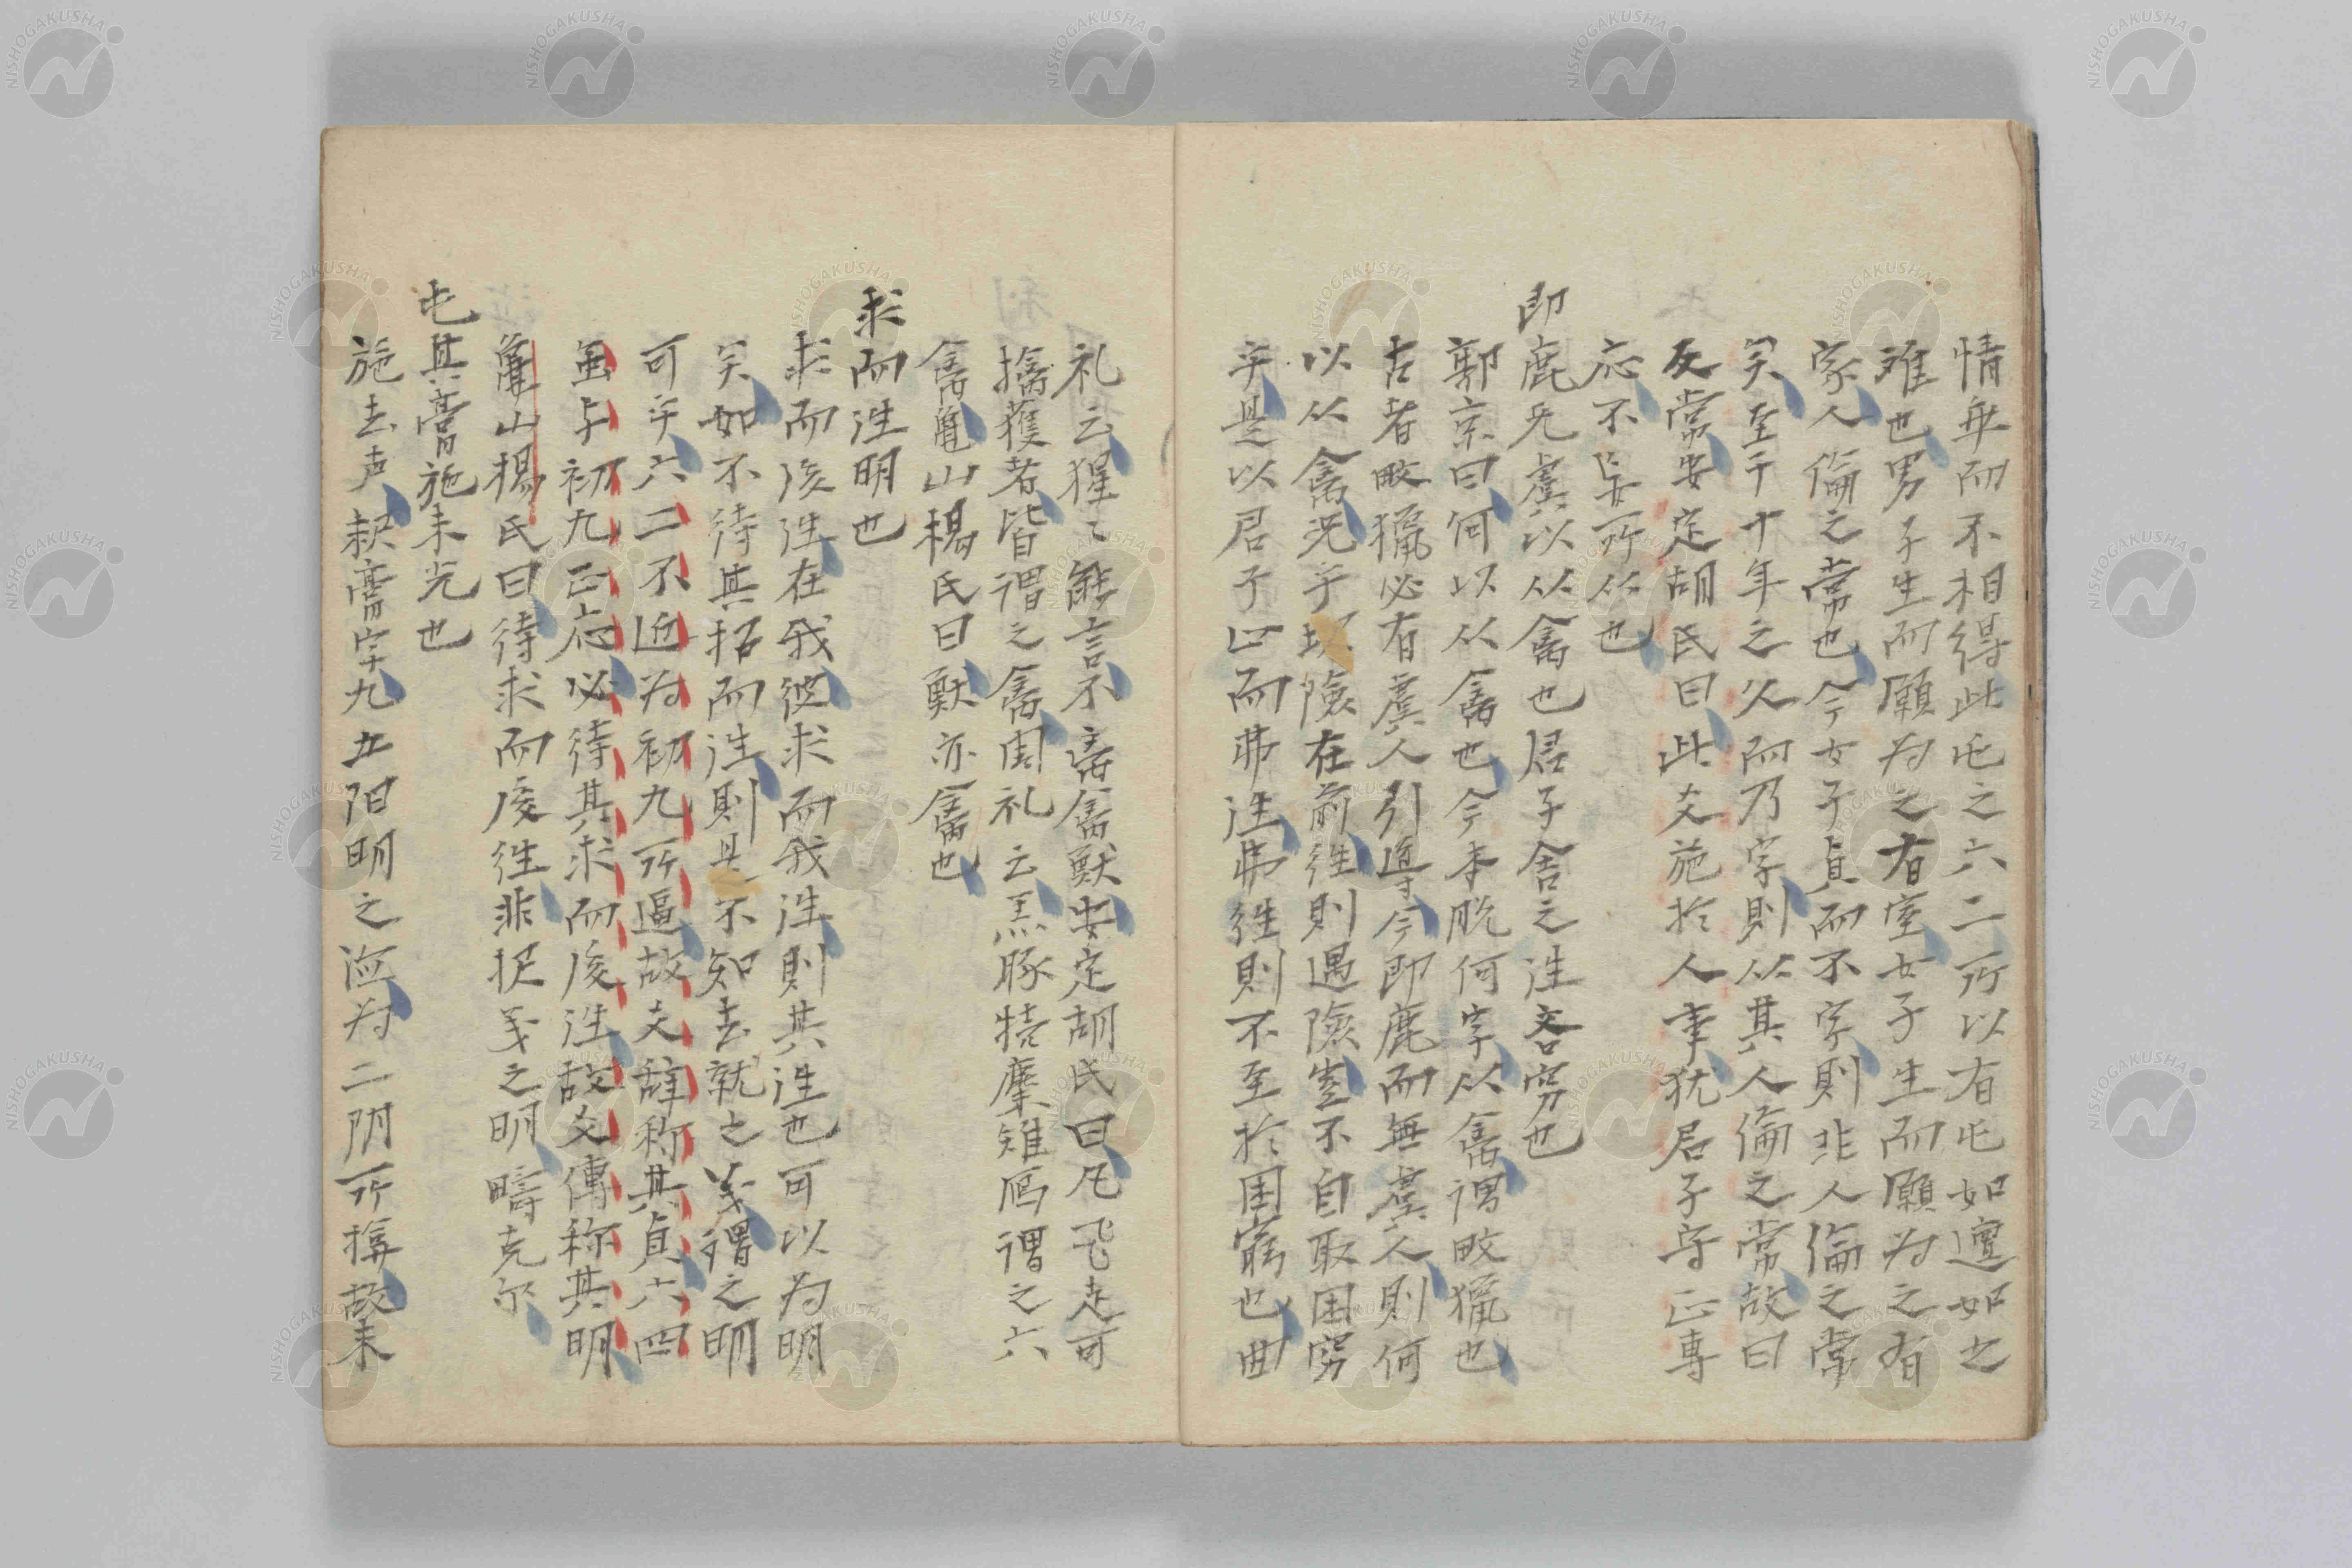 情年而不相得此屯之六二所以有屯如邅如之
难也男子生而願为之有室女子生而願为之有
家人倫之常也今女子貞而不字則非人倫之常
矣至于十年之久而乃字則从其人倫之常故曰
反常安定胡氏曰此爻施於人事犹君子守正專
応不妄所从也
即鹿无虞以从禽也君子舍之往吝穷也
郭京曰何以从禽也今本脱何字从禽謂畋猟也
古者畋猟必有虞人引導今即鹿而無虞人則何
以从禽况乎坎險在前徃則遇險豈不自取困穷
乎是以君子止而弗往弗徃則不至於困窮也曲
礼云猩〻能言不离禽獣安定胡氏曰凡飞走可
擒獲者皆謂之禽周礼云羔豚犢麋雉雁謂之六
禽龜山楊氏曰獣亦禽也
求而往明也
求而後往在我彼求而我往則其往也可以为明
矣如不待其招而往則是不知去就之義謂之明
可乎六二不近为初九所逼故爻辞称其貞六四
虽与初九正応必待其求而後往故爻傳称其明
龜山楊氏曰待求而後徃非抿義之明疇克尔
屯其膏施未光也
施去声耕膏字九五阳明之海为二阴所揜故未
NISHOGAKUSHA